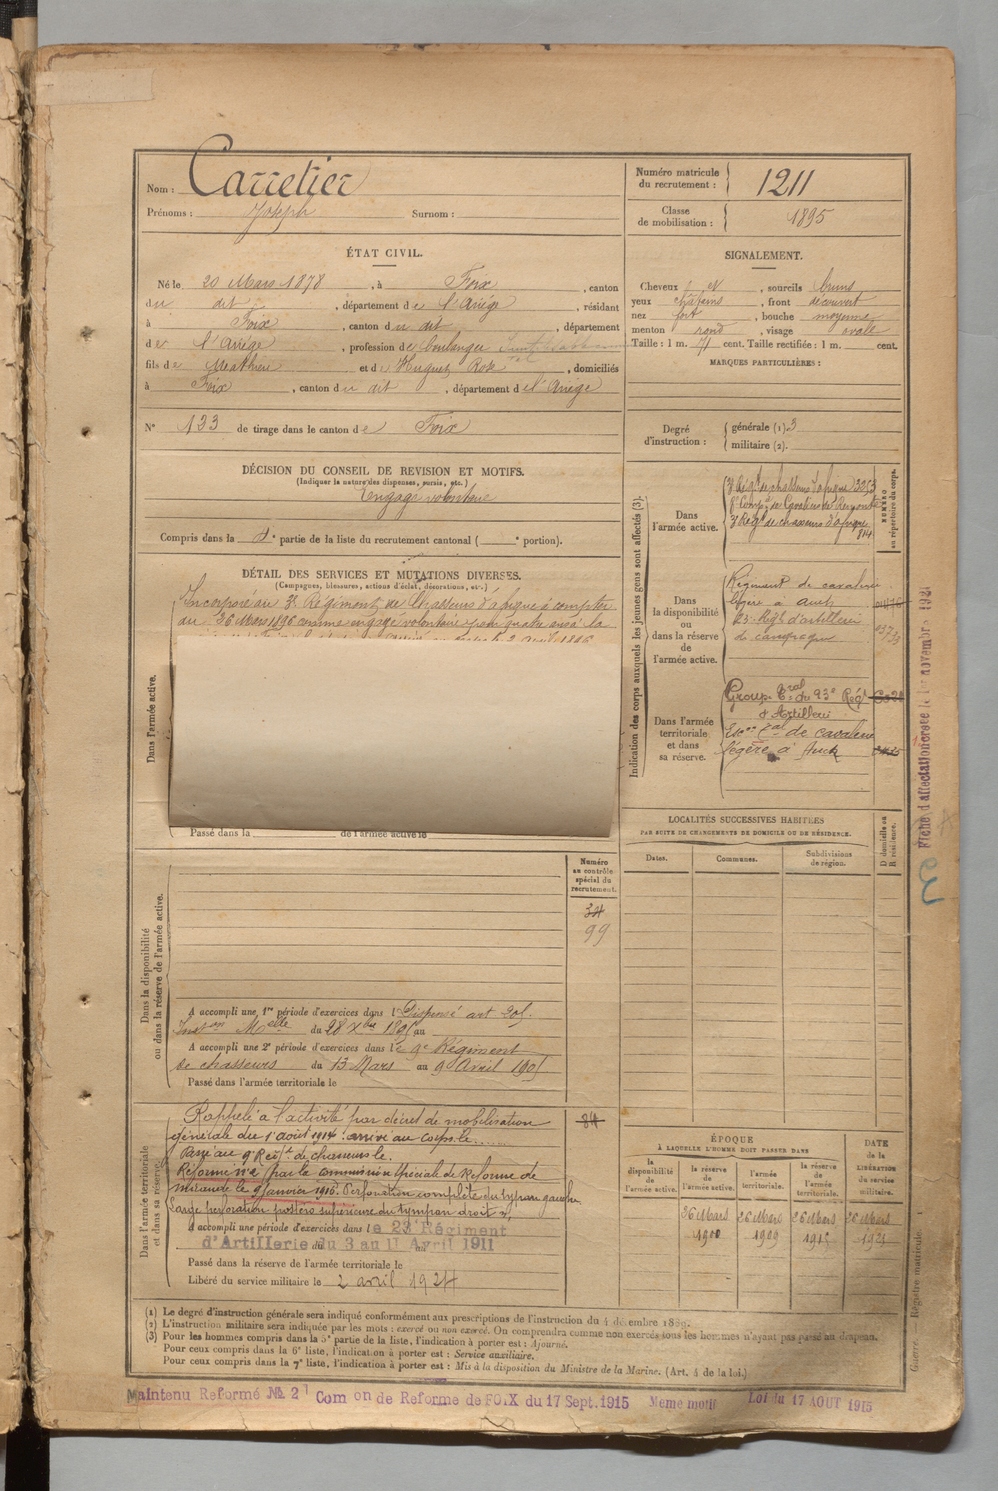 Nom : Carretier
Prénoms : Joseph Surnom :
Numéro matricule du recrutement : 1211
Classe de mobilisation : 1895
ÉTAT CIVIL.
Né le 20 Mars 1878, à Foix, canton
du dit, département de l'Ariége, résidant
à Foix, canton du dit, département
de l'Ariége, profession de boulanger
fils de Mathieu et de Huguet Rose, domiciliés
à Foix, canton du dit, département de l'Ariége
N° 133 de tirage dans le canton de Foix
SIGNALEMENT.
Cheveux et, sourcils bruns
yeux chatains, front découvert
nez fort, bouche moyenne
menton rond, visage ovale
Taille : 1 m. 71 cent. Taille rectifiée : 1 m. cent.
MARQUES PARTICULIÈRES :
Degré d'instruction : générale (1). 3
militaire (2).
DÉCISION DU CONSEIL DE REVISION ET MOTIFS.
(Indiquer la nature des dispenses, sursis, etc.)
Engagé volontaire
Compris dans la partie de la liste du recrutement cantonal ( portion).
DÉTAIL DES SERVICES ET MUTATIONS DIVERSES.
(Campagnes, blessures, actions d'éclat, décorations, etc.)
Incorporé au 3e Régiment de Chasseurs d'afrique à compter
du 26 Mars 1896 comme engagé volontaire pour quatre ans à la
2 avril 1896
Dans l'armée active.
Passé dans la de l'armée active le
Indication des corps auxquels les jeunes gens sont affectés (3).
Dans l'armée active.
3e Régt de chasseurs d'afrique 3253
8e Compie de Cavaliers de Remonte
3e Régt de chasseurs d'afrique 814
NUMÉRO au répertoire du corps.
Dans la disponibilité ou dans la réserve de l'armée active.
Régiment de cavalerie
légère à Auch
23e Régt d'artillerie
de campagne
Dans l'armée territoriale et dans sa réserve.
Groupe Tral du 23e Régt
d'Artillerie
Escon Tal de cavalerie
légère à Auch
Fiche d'affectation créée le 1er novembre 192
LOCALITÉS SUCCESSIVES HABITÉES
PAR SUITE DE CHANGEMENTS DE DOMICILE OU DE RÉSIDENCE.
Dates. Communes. Subdivisions de région. D domicile ou R résidence.
Dans la disponibilité ou dans la réserve de l'armée active.
Numéro au contrôle spécial du recrutement.
34
99
A accompli une 1re période d'exercices dans l Dispensé art 205.
Inston Melle du 28 Xbre 1895 au
A accompli une 2e période d'exercices dans le 9e Régiment
de chasseurs du 13 Mars au 9 Avril 1905
Passé dans l'armée territoriale le
Dans l'armée territoriale et dans sa réserve.
84
Rappelé à l'activité par décret de mobilisation
générale du 1er août 1914 : arrivé au corps le......
Passé au 9e Régt de chasseurs le.
Réformé n°2 par la commission spéciale de Réforme de
Mirande le 9 janvier 1915. Perforation complète du tympan gauche
Large perforation postéro supérieure du tympan droit
A accompli une période d'exercices dans le 23e Régiment
d'Artillerie du 3 au 11 Avril 1911
Passé dans la réserve de l'armée territoriale le
Libéré du service militaire le 2 avril 1924
ÉPOQUE
À LAQUELLE L'HOMME DOIT PASSER DANS
la disponibilité de l'armée active. la réserve de l'armée active. l'armée territoriale. la réserve de l'armée territoriale. DATE de la LIBÉRATION du service militaire.
26 Mars 26 Mars 26 Mars 26 Mars
1900 1909 1915 1921
(1) Le degré d'instruction générale sera indiqué conformément aux prescriptions de l'instruction du 4 décembre 1889.
(2) L'instruction militaire sera indiquée par les mots : exercé ou non exercé. On comprendra comme non exercés tous les hommes n'ayant pas passé au drapeau.
(3) Pour les hommes compris dans la 5e partie de la liste, l'indication à porter est : Ajourné.
Pour ceux compris dans la 6e liste, l'indication à porter est : Service auxiliaire.
Pour ceux compris dans la 7e liste, l'indication à porter est : Mis à la disposition du Ministre de la Marine. (Art. 4 de la loi.)
Guerre. Registre matricule.
Maintenu Reformé № 2 Com on de Reforme de FOIX du 17 Sept. 1915 Meme motif Loi du 17 AOUT 1915